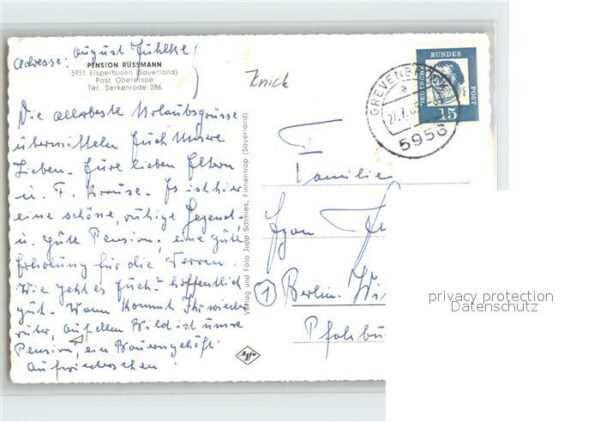 Adresse: August Jühlke!
PENSION RÜSSMANN
5951 Elsperhusen (Sauerland)
Post Oberelspe
Tel. Serkenrode 286
Knick
Die allerbeste Urlaubsgrüsse
übermitteln Euch Unsere
Lieben. Eure lieben Eltern
u. F. Krause. Es ist hier
eine schöne, ruhige Gegend,
u. gute Pension, eine gute
Erholung für die Nerven.
Wie geht es Euch? hoffentlich
gut. Wann kommt Ihr wieder
rüber, auf dem Bild ist unsre
Pension, ein Bauerngehöft
Aufwiedersehen!
Verlag und Foto Jupp Schmies, Finnentrop (Sauerland)
GREVENBRÜCK
a
5953
DEUTSCHE BUNDESPOST
15
Familie
1 Berlin. Wi
Pfalzbu
privacy protection
Datenschutz